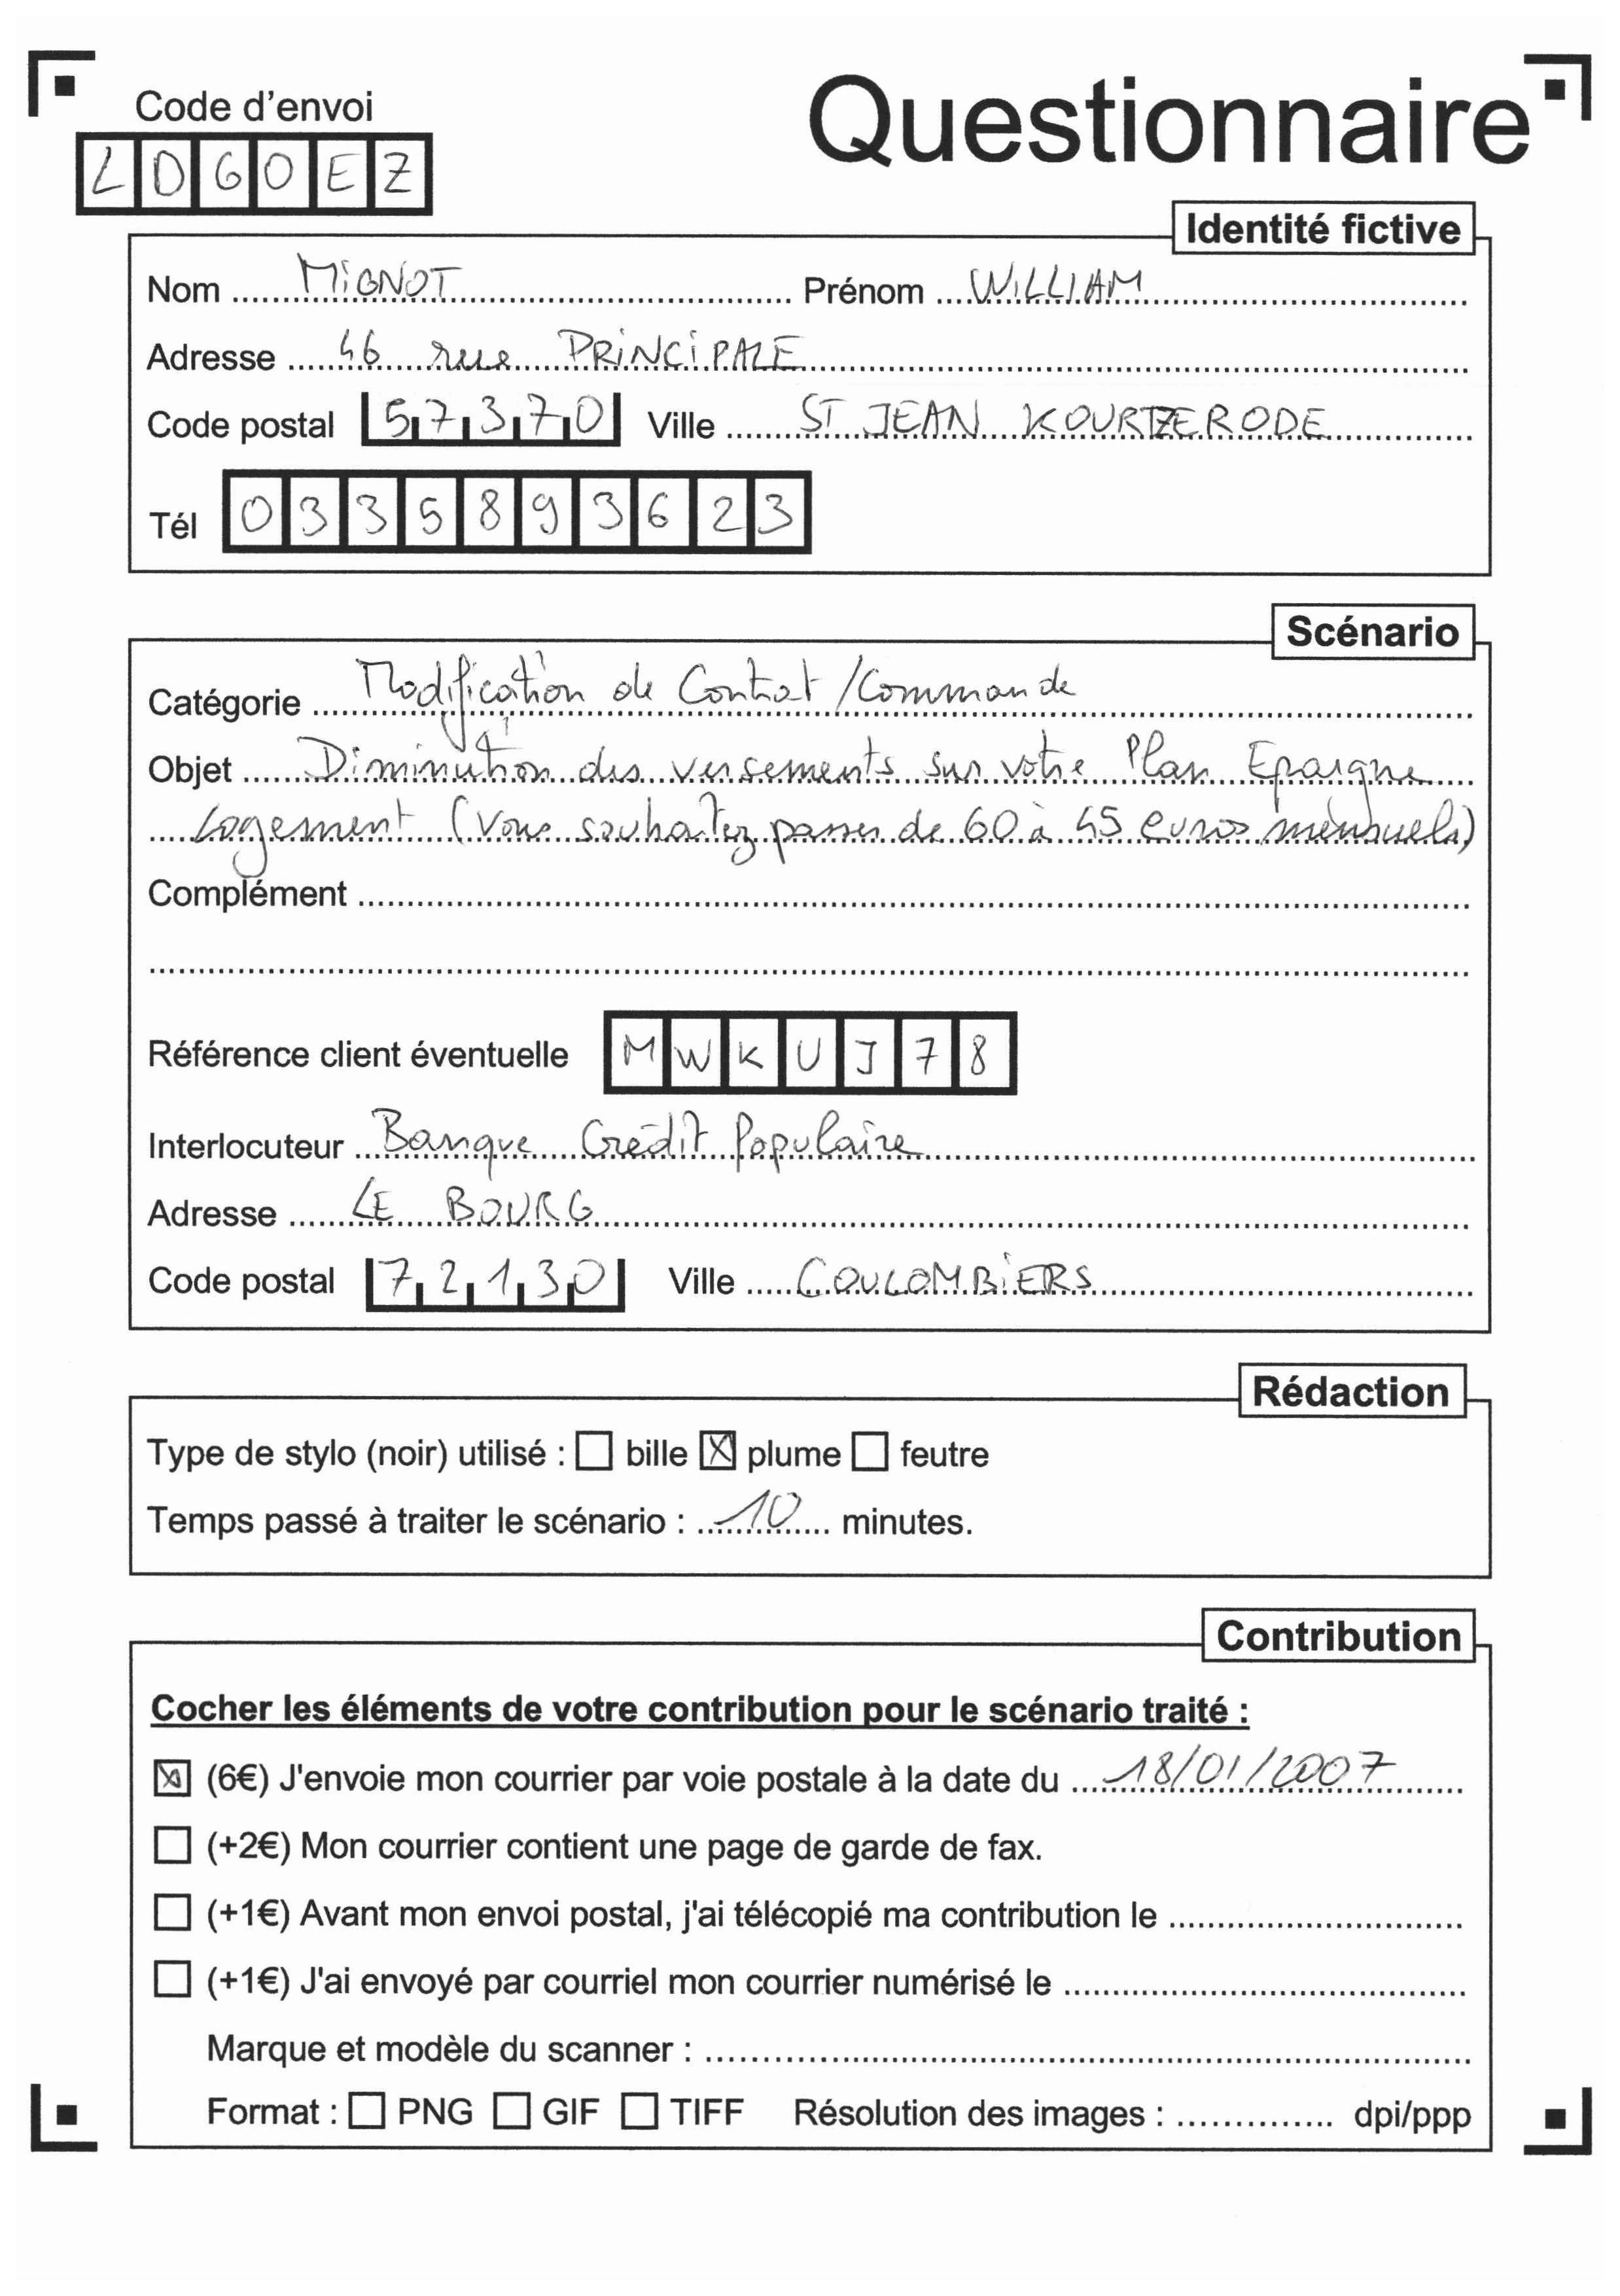 Code d'envoi
Questionnaire
LDGOEZ
Identité fictive
Nom MiGNOT Prénom WiLLIAM
Adresse 46 rue PRiNCiPALE
Code postal 57370 Ville ST JEAN KOURTZERODE
Tél 0335893623
Scénario
Catégorie Modification de Contrat/Commande
Objet Diminution des versements sur votre Plan Epargne
Logement (vous souhaitez passer de 60 à 45 euros mensuels)
Complément
Référence client éventuelle MWKUJ78
Interlocuteur Banque Crédit Populaire
Adresse LE BOURG
Code postal 72130 Ville COULOMBiERS
Rédaction
Type de stylo (noir) utilisé : ☐ bille ☒ plume ☐ feutre
Temps passé à traiter le scénario : 10 minutes.
Contribution
Cocher les éléments de votre contribution pour le scénario traité :
☒ (6€) J'envoie mon courrier par voie postale à la date du 18/01/2007
☐ (+2€) Mon courrier contient une page de garde de fax.
☐ (+1€) Avant mon envoi postal, j'ai télécopié ma contribution le
☐ (+1€) J'ai envoyé par courriel mon courrier numérisé le
Marque et modèle du scanner :
Format : ☐ PNG ☐ GIF ☐ TIFF Résolution des images : dpi/ppp